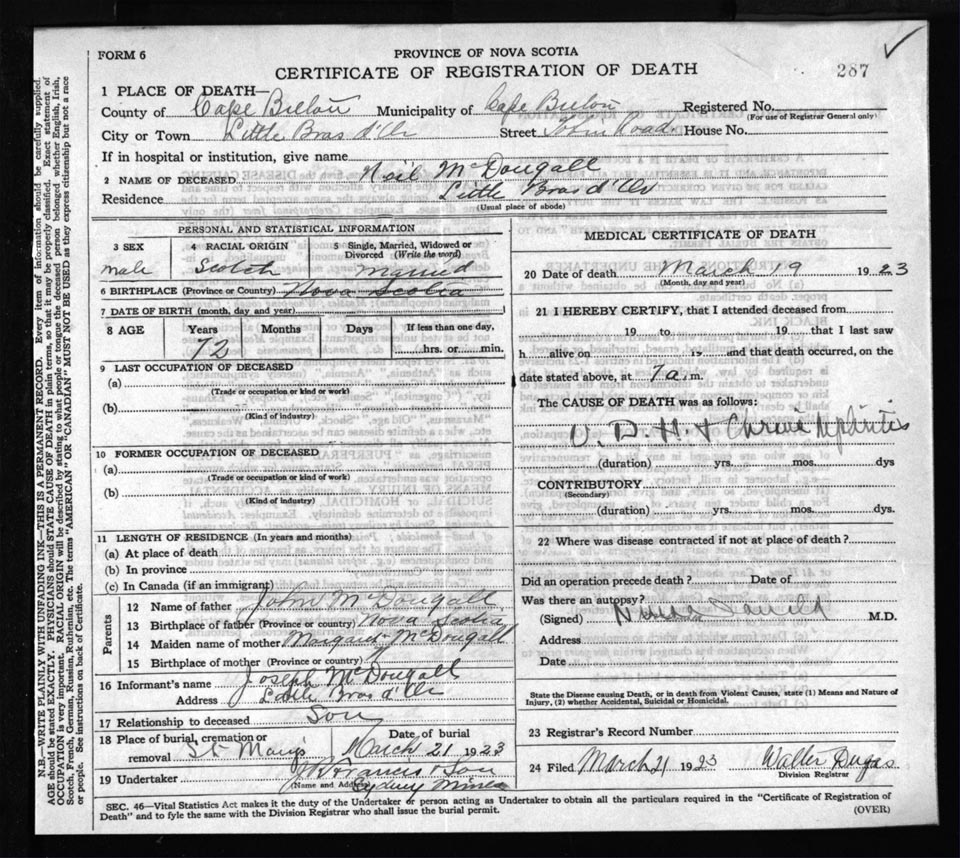 FORM 6
PROVINCE OF NOVA SCOTIA
CERTIFICATE OF REGISTRATION OF DEATH
287
1 PLACE OF DEATH—
County of Cape Breton Municipality of Cape Breton Registered No.
(For use of Registrar General only)
City or Town Little Bras d'Or Street Road House No.
If in hospital or institution, give name
2 NAME OF DECEASED Neil McDougall
Residence Little Bras d'Or
(Usual place of abode)
PERSONAL AND STATISTICAL INFORMATION
3 SEX 4 RACIAL ORIGIN 5 Single, Married, Widowed or Divorced (Write the word)
male Scotch married
6 BIRTHPLACE (Province or Country) Nova Scotia
7 DATE OF BIRTH (month, day and year)
8 AGE Years Months Days If less than one day,
72 hrs. or min.
9 LAST OCCUPATION OF DECEASED
(a)
(Trade or occupation or kind of work)
(b)
(Kind of industry)
10 FORMER OCCUPATION OF DECEASED
(a)
(Trade or occupation or kind of work)
(b)
(Kind of industry)
11 LENGTH OF RESIDENCE (In years and months)
(a) At place of death
(b) In province
(c) In Canada (if an immigrant)
Parents
12 Name of father John McDougall
13 Birthplace of father (Province or country) Nova Scotia
14 Maiden name of mother Margaret McDougall
15 Birthplace of mother (Province or country)
16 Informant's name Joseph McDougall
Address Little Bras d'Or
17 Relationship to deceased Son
18 Place of burial, cremation or removal St Mary's Date of burial March 21 1923
19 Undertaker Francis & Son
(Name and Address) Sydney Mines
MEDICAL CERTIFICATE OF DEATH
20 Date of death March 19 1923
(Month, day and year)
21 I HEREBY CERTIFY, that I attended deceased from
19 to 19 that I last saw
h alive on 19 and that death occurred, on the
date stated above, at 7 a. m.
The CAUSE OF DEATH was as follows:
V. D. H. + Chronic Nephritis
(duration) yrs. mos. dys
CONTRIBUTORY
(Secondary)
(duration) yrs. mos. dys.
22 Where was disease contracted if not at place of death?
Did an operation precede death? Date of
Was there an autopsy?
(Signed) M.D.
Address
Date
State the Disease causing Death, or in death from Violent Causes, state (1) Means and Nature of
Injury, (2) whether Accidental, Suicidal or Homicidal.
23 Registrar's Record Number
24 Filed March 21 1923 Walter Dugas
Division Registrar
SEC. 46—Vital Statistics Act makes it the duty of the Undertaker or person acting as Undertaker to obtain all the particulars required in the "Certificate of Registration of
Death" and to fyle the same with the Division Registrar who shall issue the burial permit.
(OVER)
N.B.—WRITE PLAINLY WITH UNFADING INK—THIS IS A PERMANENT RECORD. Every item of information should be carefully supplied.
AGE should be stated EXACTLY. PHYSICIANS should STATE CAUSE OF DEATH in plain terms, so that it may be properly classified. Exact statement of
OCCUPATION is very important. RACIAL ORIGIN will be described by stating to what people or tongue the deceased person belonged whether English, Irish,
Scotch, French, German, Russian, Ruthenian, etc. The terms "AMERICAN" or "CANADIAN" MUST NOT BE USED as they express citizenship but not a race
or people. See instructions on back of Certificate.